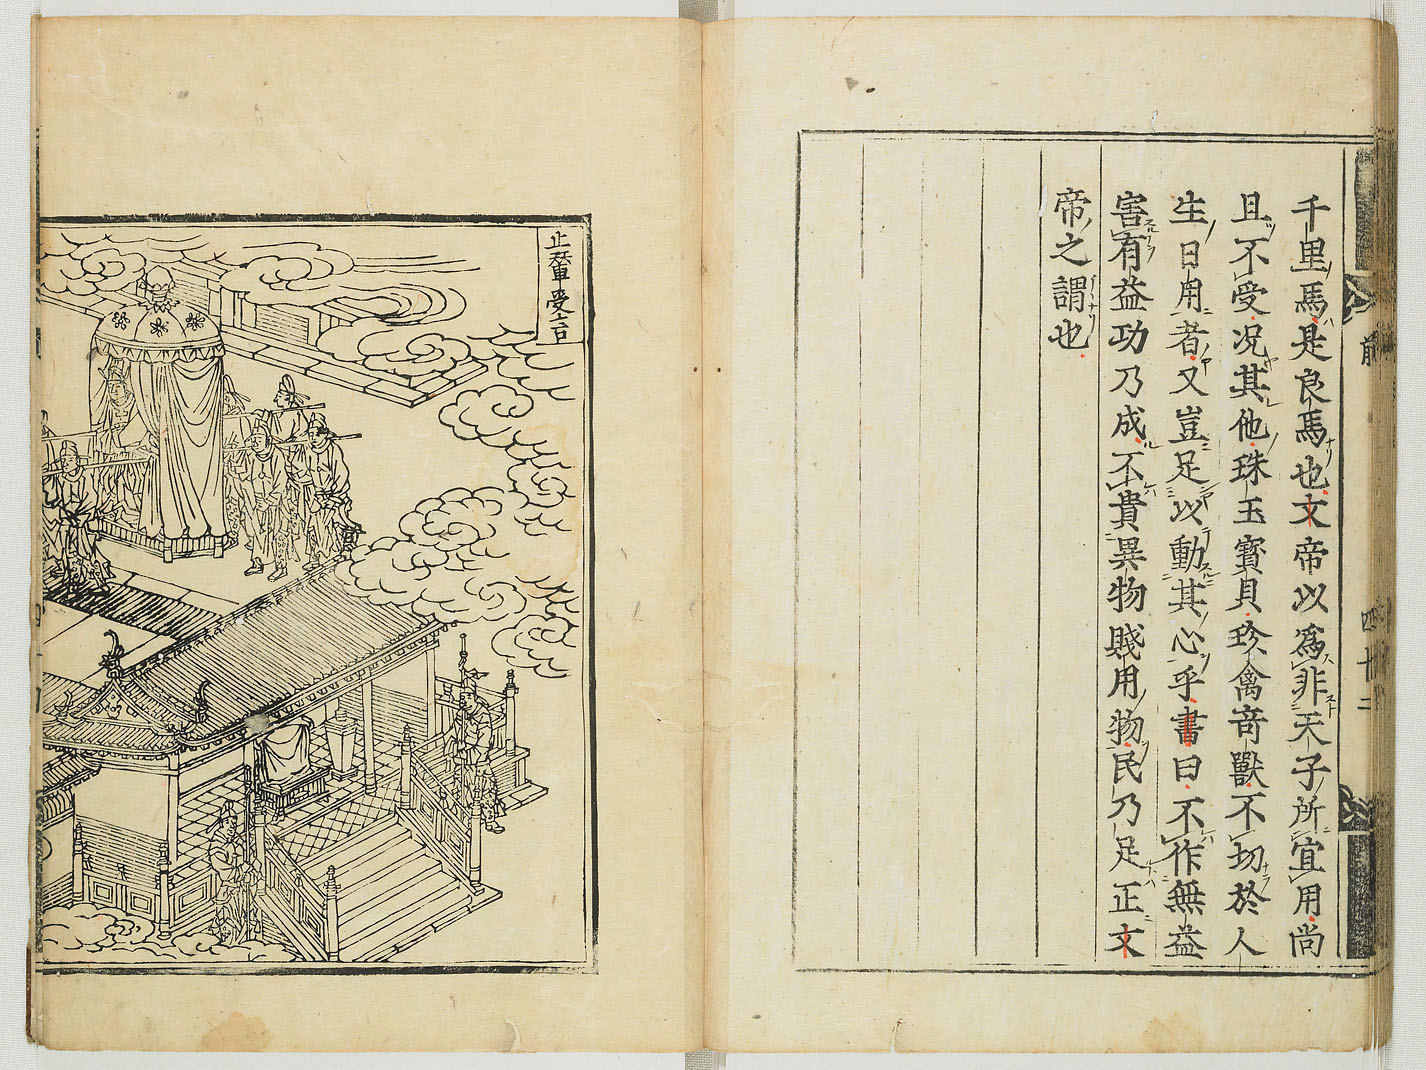 千里馬是良馬也文帝以爲非天子所宜用尚
且不受况其他珠玉寳貝珍禽竒獸不切於人
生日用者又豈足以動其心乎書曰不作無益
害有益功乃成不貴異物賤用物民乃足正文
帝之謂也
前
四十二
止輦受言